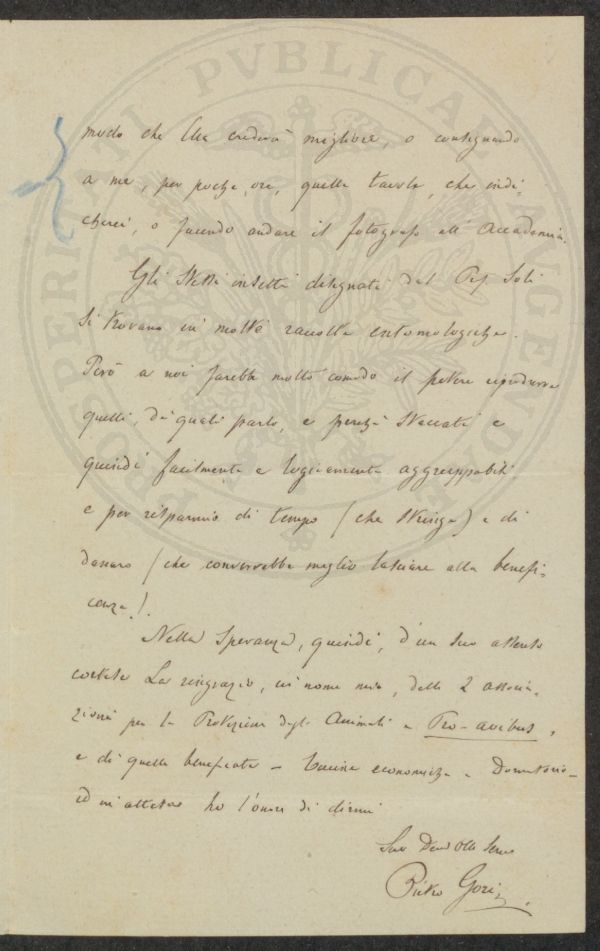 modo che Ella crederà migliore, o consegnando
a me, per poche ore, quelle tavole, che indi-
cherei, o facendo andare il fotografo all'Accademia.
Gli stessi insetti disegnati dal Pf Soli
si trovano in molte raccolte entomologiche.
Però a noi farebbe molto comodo il potere riprodurre
quelli, de' quali parlo, e perchè staccati e
quindi facilmente e logicamente aggruppabili
e per risparmio di tempo (che stringe) e di
danaro (che converrebbe meglio lasciare alla benefi-
cenza).
Nella speranza, quindi, d'un suo assenso
cortese La ringrazio, in nome mio, delle 2 associa-
zioni per la Protezione degli Animali e Pro-avibus,
e di quelle beneficate - Cucine economiche e Dormitorio -
ed in attesa ho l'onore di dirmi
Suo Dev Obb Servo
Pietro Gori
PROSPERITATI PVBLICAE AVGENDAE